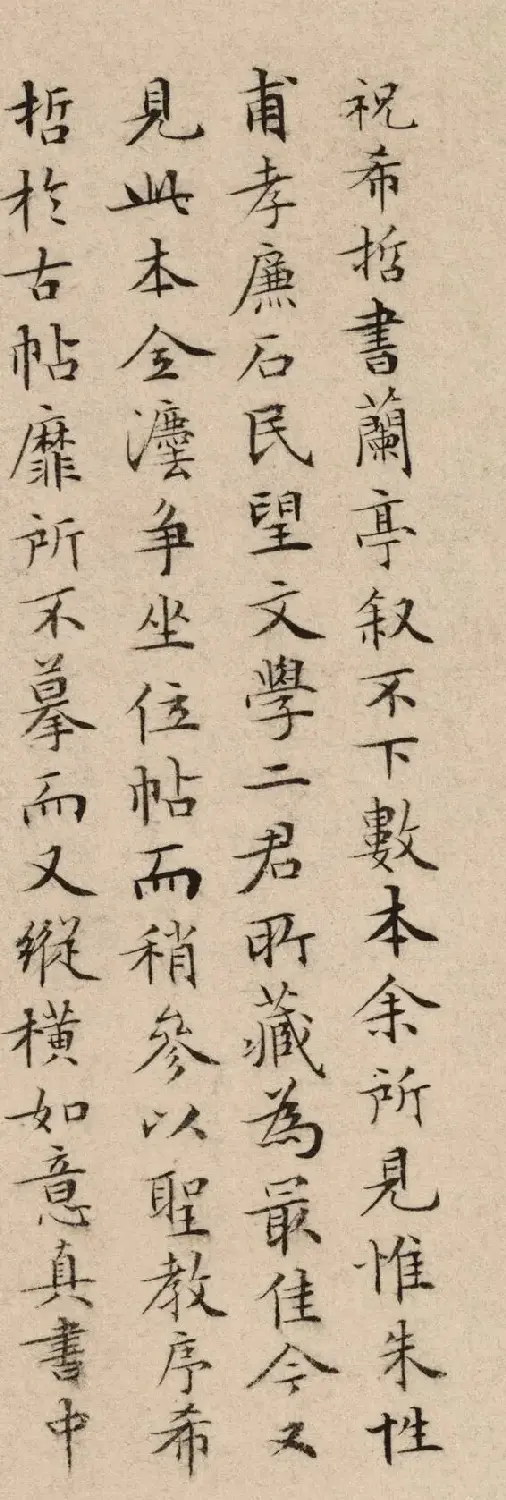 祝希哲書蘭亭叙不下數本余所見惟朱性
甫孝廉石民望文學二君所藏為最佳今又
見此本全灋争坐位帖而稍參以聖教序希
哲於古帖靡所不摹而又縱橫如意真書中